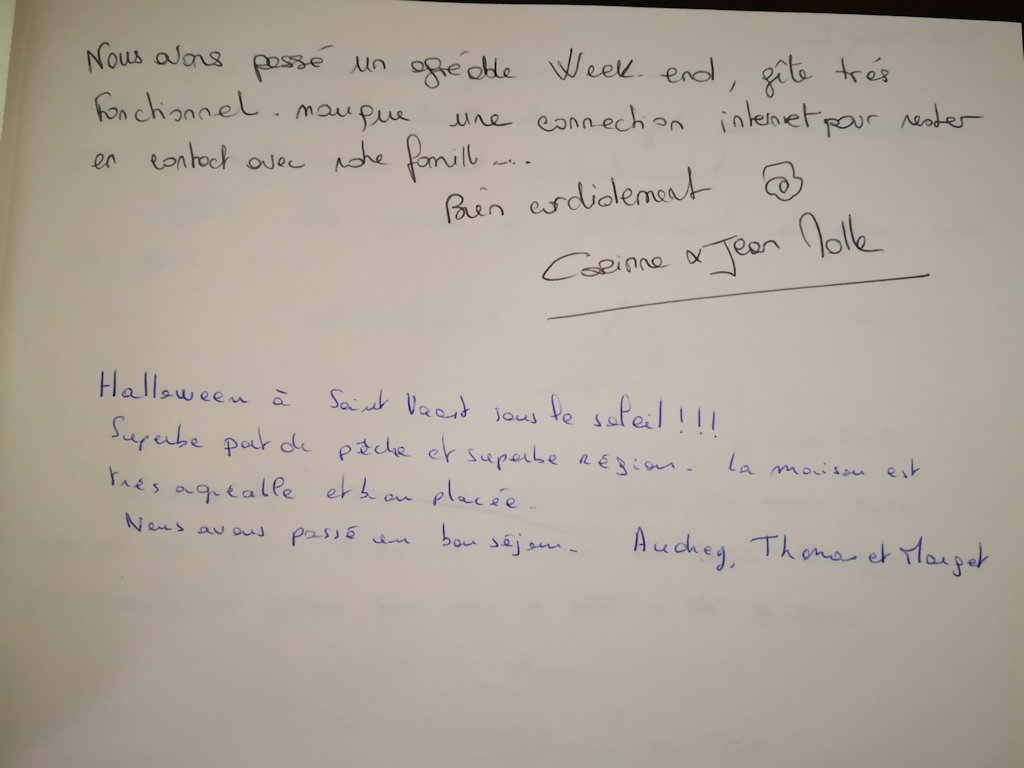 Nous avons passé un agréable Week-end, gîte très
fonctionnel. manque une connection internet pour rester
en contact avec notre famille ...
Bien cordialement
Corinne & Jean
Halloween à Saint Vaast sous le soleil !!!
Superbe port de pêche et superbe région. La maison est
très agréable et bien placée.
Nous avons passé un bon séjour. Audrey, Thomas et Margot